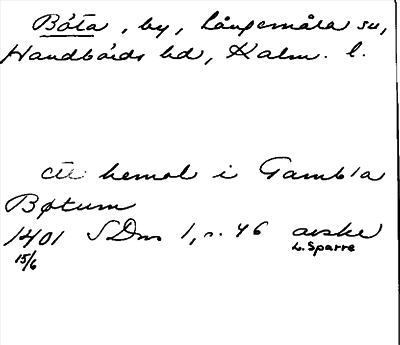 Bóta, by, Långemåla sn,
Handbörds hd, Kalm. l.
ett hemal i Gambla
Bøtum
1401 SDns 1, s. 46 avskr
15/6 L. Sparre